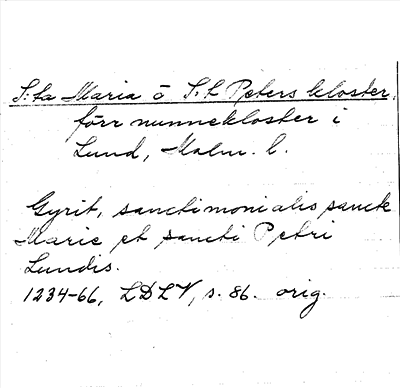 S:ta Maria o S:t Peters kloster,
förr nunnekloster i
Lund, Malm. l.
Gyrit, sanctimonialis sancte
Marie et sancti Petri
Lundis.
1234-66, LDLV, s. 86. orig.